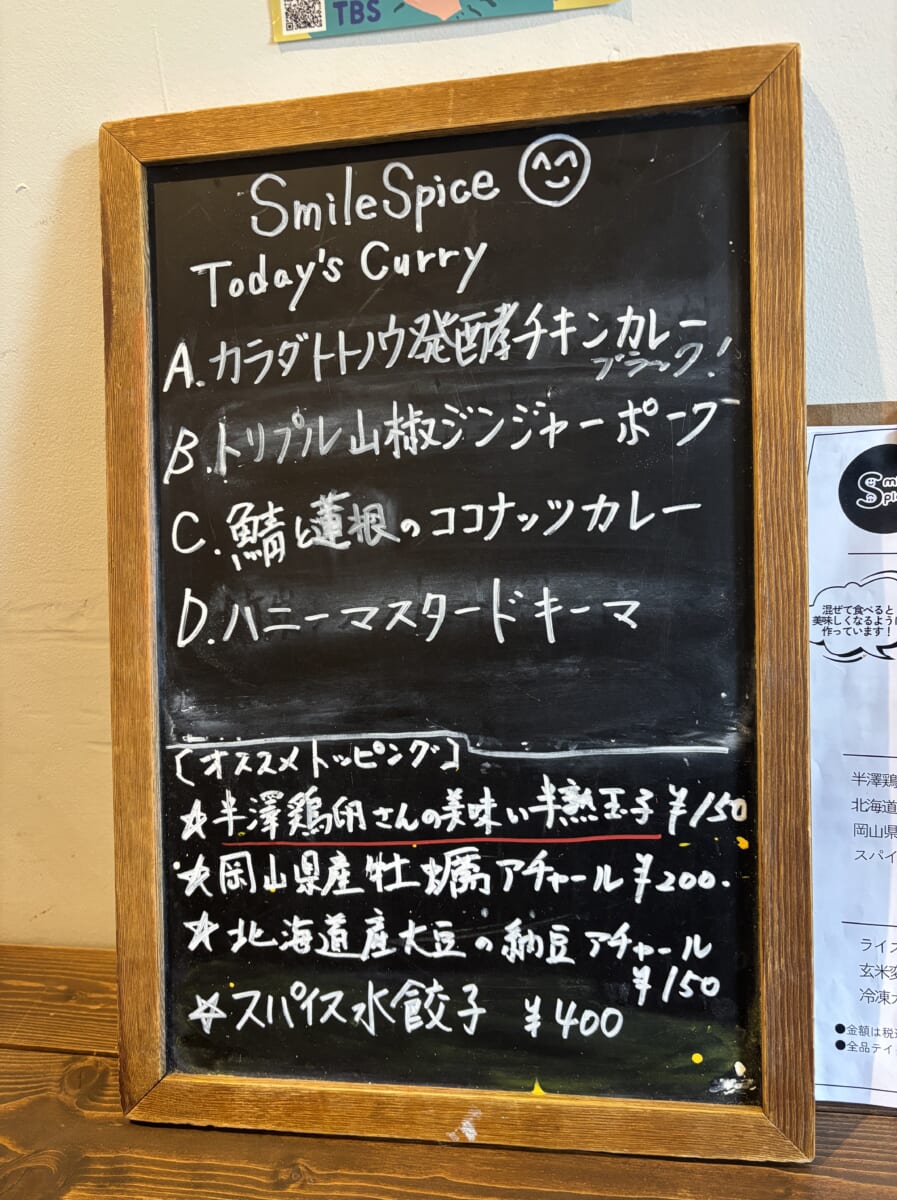 TBS
SmileSpice
Today's Curry
A. カラダトトノウ発酵チキンカレー
ブラック!
B. トリプル山椒ジンジャーポーク
C. 鯖と蓮根のココナッツカレー
D. ハニーマスタードキーマ
[オススメトッピング]
☆半澤鶏卵さんの美味い半熟玉子 ¥150
☆岡山県産牡蠣アチャール ¥200.
☆北海道産大豆の納豆アチャール
¥150
☆スパイス水餃子 ¥400
混ぜて食べると
美味しくなるように
作っています!
半澤鶏
北海道
岡山県
スパイ
ライス
玄米変
冷凍
●金額は税
●全品テイ